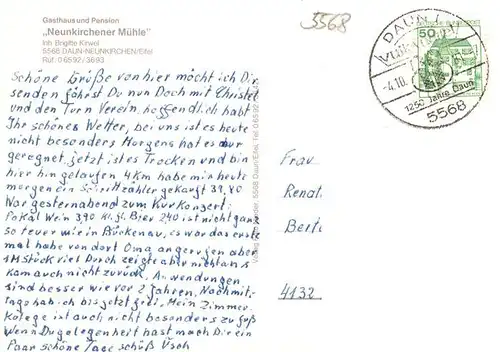 Gasthaus und Pension
„Neunkirchener Mühle"
Inh. Brigitte Kirwel
5568 DAUN-NEUNKIRCHEN/Eifel
Ruf: 0 65 92 / 36 93
5568
50
DAUN 1
-4.10.
1250 Jahre Daun
5568
Schöne Grüße von hier möcht ich Dir
senden fährst Du nun Doch mit Christel
und den Turn Verein, hoffendlich habt
Ihr schönes Wetter, bei uns ist es heute
nicht besonders Morgens hat es nur
geregnet jetzt ist es Trocken und bin
hier hingelaufen 4 Km habe mir heute
morgen ein Schrittzähler gekauft 39,80
War gestern abend zum Kur Konzert:
Pokal Wein 3,90 Kl. Gl. Bier 2,40 ist nicht ganz
so teuer wie in Brückenau, es war das erste
mal habe von dort Oma angerufen aber
1 M Stück viel Durch zeigte aber nichts an
kam auch nicht zurück. Anwendungen
sind besser wie vor 2 Jahren, Nachmit-
tags hab ich bis jetzt frei. Mein Zimmer
Kolege ist auch nicht besonders zu fuß
Wenn Du gelegenheit hast mach Dir ein
Paar schöne Tage
Frau
Renat
Berta
4132